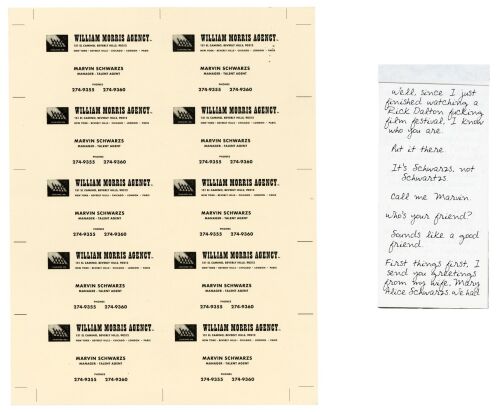 WILLIAM MORRIS AGENCY.
151 EL CAMINO, BEVERLY HILLS, 90212
NEW YORK · BEVERLY HILLS · CHICAGO · LONDON · PARIS
MARVIN SCHWARZS
MANAGER - TALENT AGENT
PHONES
274-9355 274-9360
WILLIAM MORRIS AGENCY.
151 EL CAMINO, BEVERLY HILLS, 90212
NEW YORK · BEVERLY HILLS · CHICAGO · LONDON · PARIS
MARVIN SCHWARZS
MANAGER - TALENT AGENT
PHONES
274-9355 274-9360
WILLIAM MORRIS AGENCY.
151 EL CAMINO, BEVERLY HILLS, 90212
NEW YORK · BEVERLY HILLS · CHICAGO · LONDON · PARIS
MARVIN SCHWARZS
MANAGER - TALENT AGENT
PHONES
274-9355 274-9360
WILLIAM MORRIS AGENCY.
151 EL CAMINO, BEVERLY HILLS, 90212
NEW YORK · BEVERLY HILLS · CHICAGO · LONDON · PARIS
MARVIN SCHWARZS
MANAGER - TALENT AGENT
PHONES
274-9355 274-9360
WILLIAM MORRIS AGENCY.
151 EL CAMINO, BEVERLY HILLS, 90212
NEW YORK · BEVERLY HILLS · CHICAGO · LONDON · PARIS
MARVIN SCHWARZS
MANAGER - TALENT AGENT
PHONES
274-9355 274-9360
WILLIAM MORRIS AGENCY.
151 EL CAMINO, BEVERLY HILLS, 90212
NEW YORK · BEVERLY HILLS · CHICAGO · LONDON · PARIS
MARVIN SCHWARZS
MANAGER - TALENT AGENT
PHONES
274-9355 274-9360
WILLIAM MORRIS AGENCY.
151 EL CAMINO, BEVERLY HILLS, 90212
NEW YORK · BEVERLY HILLS · CHICAGO · LONDON · PARIS
MARVIN SCHWARZS
MANAGER - TALENT AGENT
PHONES
274-9355 274-9360
WILLIAM MORRIS AGENCY.
151 EL CAMINO, BEVERLY HILLS, 90212
NEW YORK · BEVERLY HILLS · CHICAGO · LONDON · PARIS
MARVIN SCHWARZS
MANAGER - TALENT AGENT
PHONES
274-9355 274-9360
WILLIAM MORRIS AGENCY.
151 EL CAMINO, BEVERLY HILLS, 90212
NEW YORK · BEVERLY HILLS · CHICAGO · LONDON · PARIS
MARVIN SCHWARZS
MANAGER - TALENT AGENT
PHONES
274-9355 274-9360
WILLIAM MORRIS AGENCY.
151 EL CAMINO, BEVERLY HILLS, 90212
NEW YORK · BEVERLY HILLS · CHICAGO · LONDON · PARIS
MARVIN SCHWARZS
MANAGER - TALENT AGENT
PHONES
274-9355 274-9360
Well, since I just
finished watching a
Rick Dalton fucking
film festival, I know
who you are.
Put it there.
It's Schwarzs, not
Schwartzs.
Call me Marvin.
Who's your friend?
Sounds like a good
friend.
First things first, I
send you greetings
from my wife, Mary
Alice Schwarzs we had